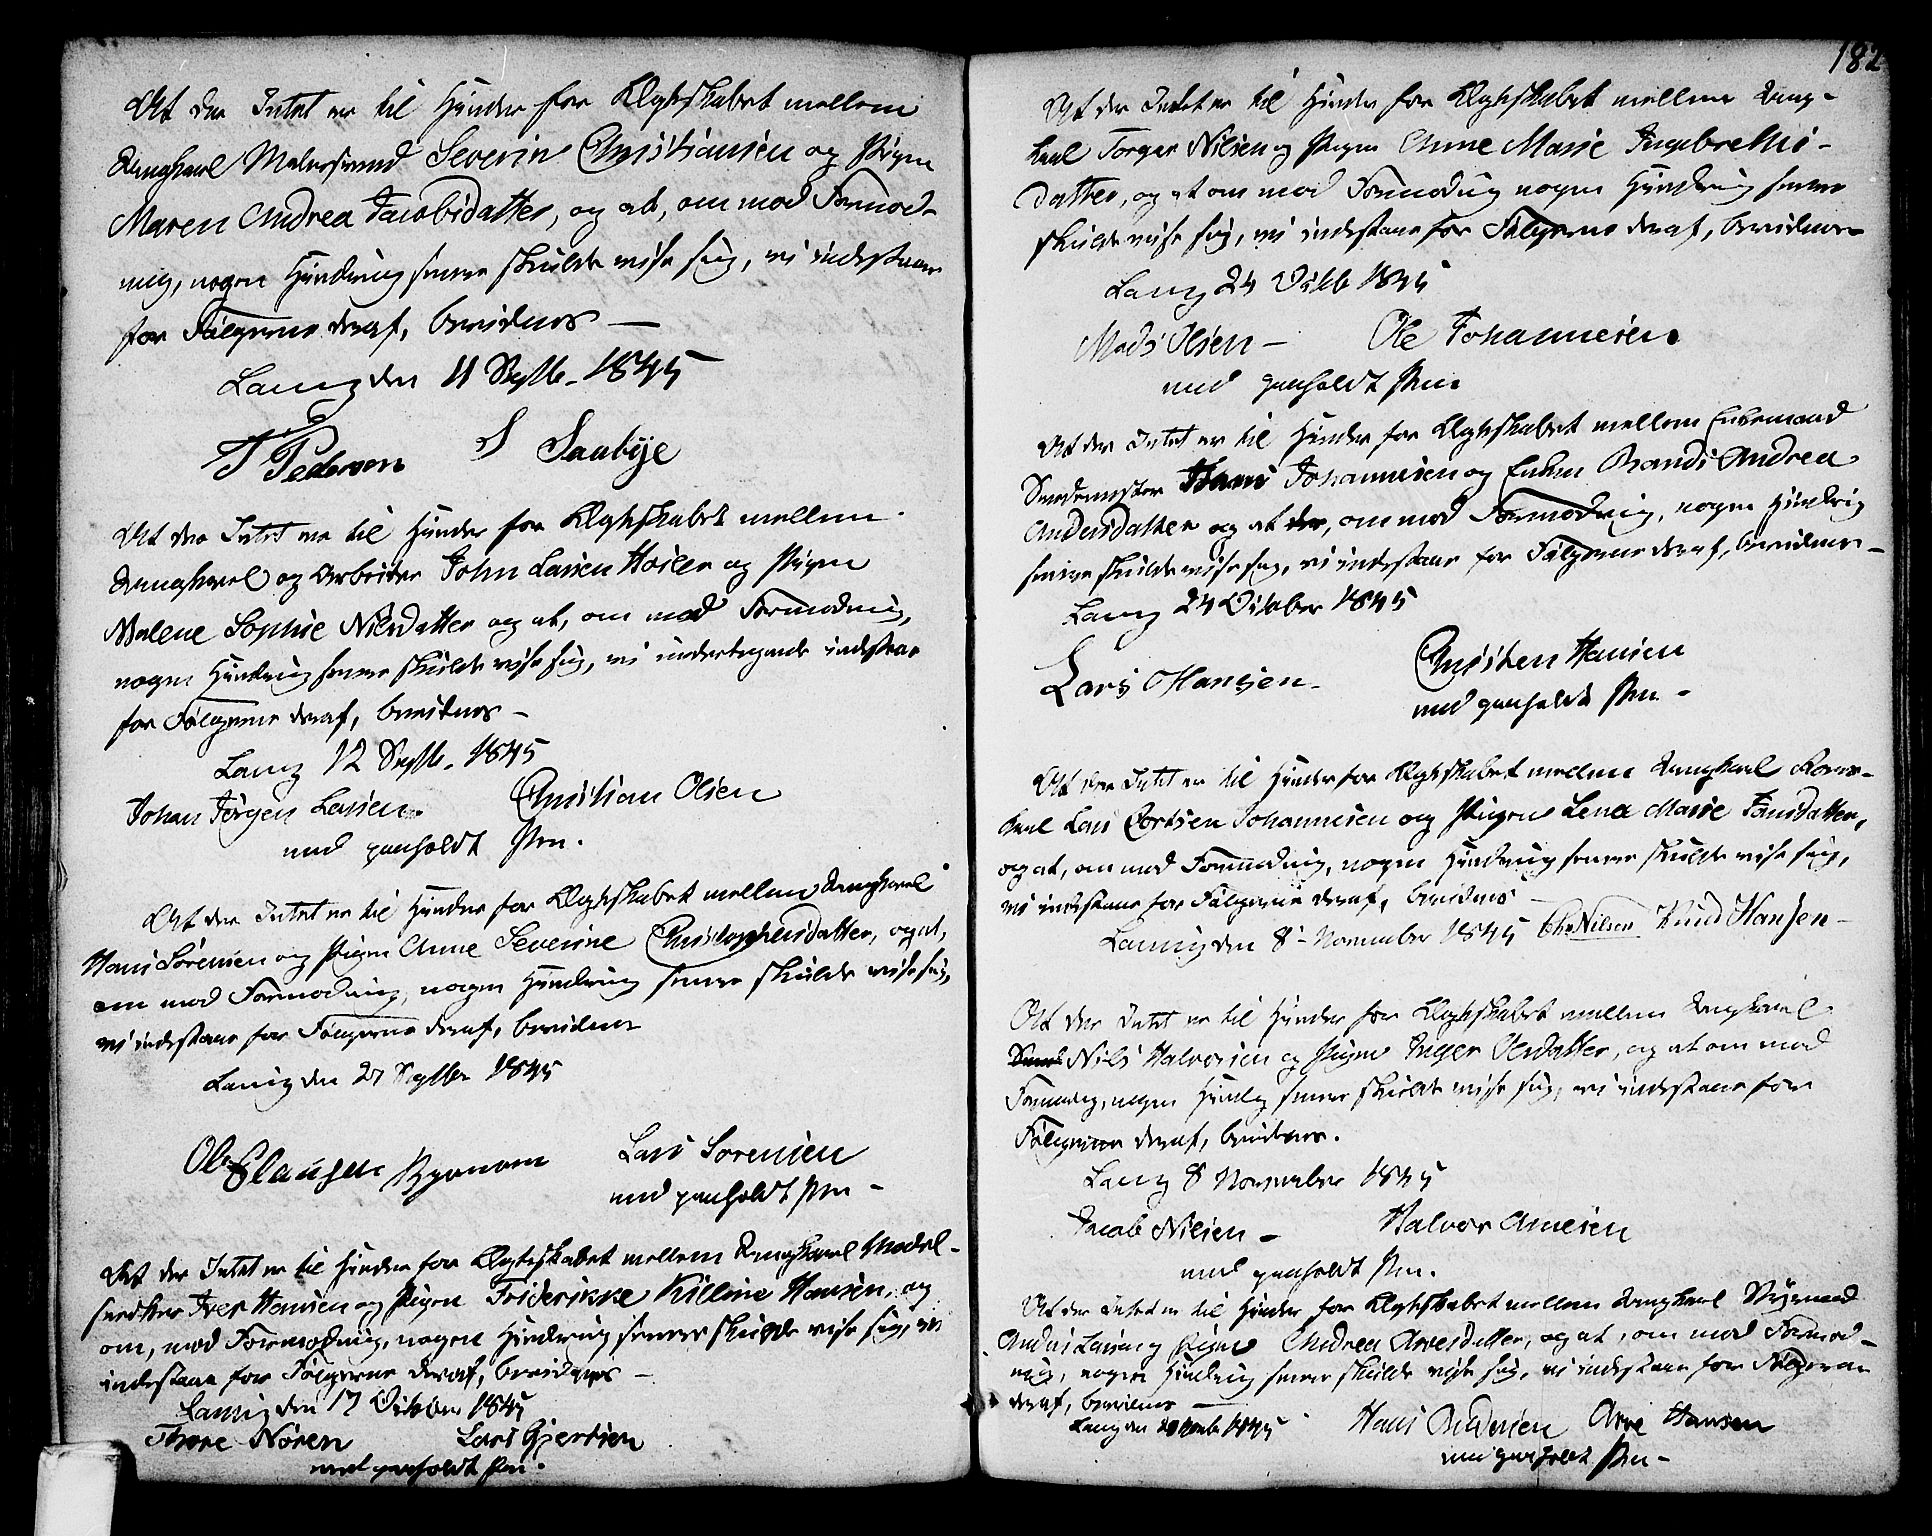 At der Intet er til Hinder for Ægteskabet mellem
Ungkarl Malersvend Severin Christiansen og Pigen
Maren Andrea Jacobsdatter, og at, om mod Formod-
ning, nogen Hindring senere skulde vise sig, vi indestaae
for Følgerne deraf, bevidnes —
Laurv den 11 Septb. 1845
T Pedersen S Saabye
At der Intet er til Hinder for Ægteskabet mellem
Ungkarl og Arbeider John Larsen Høiler og Pigen
Malene Sophie Nilsdatter og at, om mod Formodning,
nogen Hindring senere skulde vise sig, vi undertegnede indestaae
for Følgerne deraf, bevidnes —
Laurv 12 Septb. 1845
Johan Jørgen Larsen. Christian Olsen
med paaholdt Pen.
At der Intet er til Hinder for Ægteskabet mellem Ungkarl
Hans Sørensen og Pigen Anne Severine Christophersdatter, og at,
om mod Formodning, nogen Hindring senere skulde vise sig,
vi indestaae for Følgerne deraf, bevidnes
Laurvig den 27 Septbr 1845
Ole Clausen Lars Sørensen
med paaholdt Pen —
At der Intet er til Hinder for Ægteskabet mellem Ungkarl Model-
snedker Iver Hansen og Pigen Friderikke Killine Hansen, og
om, mod Formodning, nogen Hindring senere skulde vise sig, vi
indestaae for Følgerne deraf, bevidnes —
Laurvig den 17 October 1845
Thore Noren Lars Gjertsen
med paaholdt Pen.
182
At der Intet er til Hinder for Ægteskabet mellem Ung-
karl Torger Nilsen og Pigen Anne Marie Ingebreths-
datter, og at om mod Formodning nogen Hindring senere
skulde vise sig, vi indestaae for Følgerne deraf, bevidnes
Laurv 24 Octb 1845
Mads Olsen — Ole Johannesen.
med paaholdt Pen.
At der Intet er til Hinder for Ægteskabet mellem Enkemand
Smedemester Hans Johannesen og Enken Randi Andrea
Andersdatter og at der, om mod Formodning, nogen Hindring
senere skulde vise sig, vi indestaae for Følgerne deraf, bevidnes —
Laurv 24 October 1845
Lars Hansen — Christen Hansen
med paaholdt Pen —
At der Intet er til Hinder for Ægteskabet mellem Ungkarl
karl Lars Johannesen og Pigen Lena Marie Hansdatter,
og at, om mod Formodning, nogen Hindring senere skulde vise sig,
vi indestaae for Følgerne deraf, bevidnes —
Laurvig den 8 November 1845 Chr Nilsen Knud Hansen —
At der Intet er til Hinder for Ægteskabet mellem Ungkarl
Nils Halvorsen og Pigen Inger Olsdatter, og at om mod
Formodng, nogen Hindrg senere skulde vise sig, vi indestaae for
Følgerne deraf, bevidnes.
Laurv 8 November 1845
Jacob Nilsen — Halvor Arnesen
med paaholdt Pen.
At der Intet er til Hinder for Ægteskabet mellem Ungkarl
Anders Larsen og Pigen Andrea Arvesdatter, og at, om mod Formod-
ning, nogen Hindring senere skulde vise sig, vi indestaae for Følgerne
deraf, bevidnes —
Laurv den Novembr 1845 Hans Andersen Arve Hansen
med paaholdt Pen —